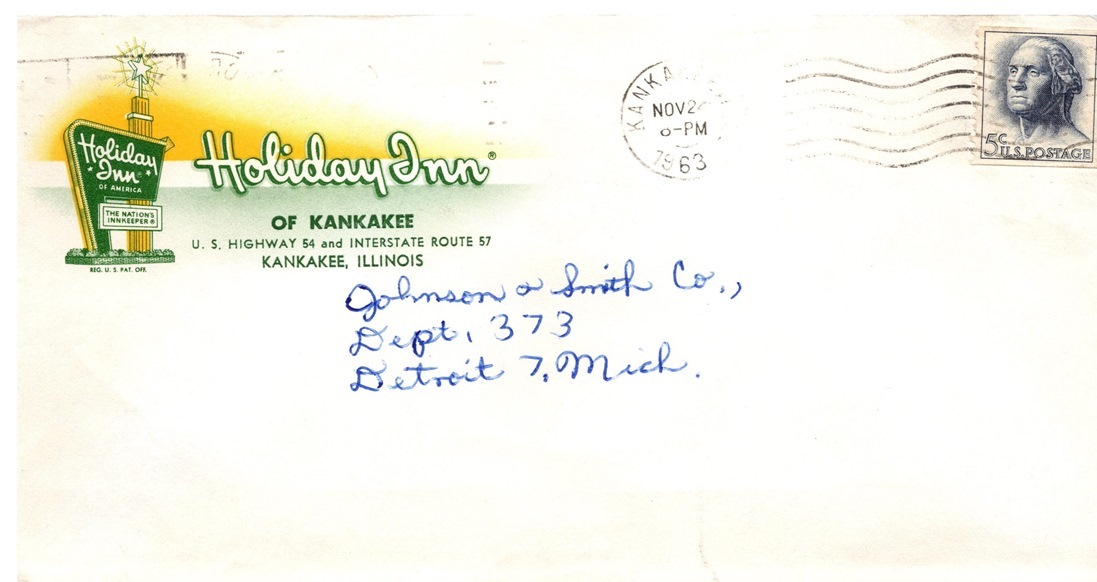 Holiday Inn
OF AMERICA
THE NATION'S
INNKEEPER ®
REG. U. S. PAT. OFF.
Holiday Inn®
OF KANKAKEE
U. S. HIGHWAY 54 and INTERSTATE ROUTE 57
KANKAKEE, ILLINOIS
NOV 2
PM
1963
5c
U.S. POSTAGE
Johnson & Smith Co.,
Dept. 373
Detroit 7, Mich.